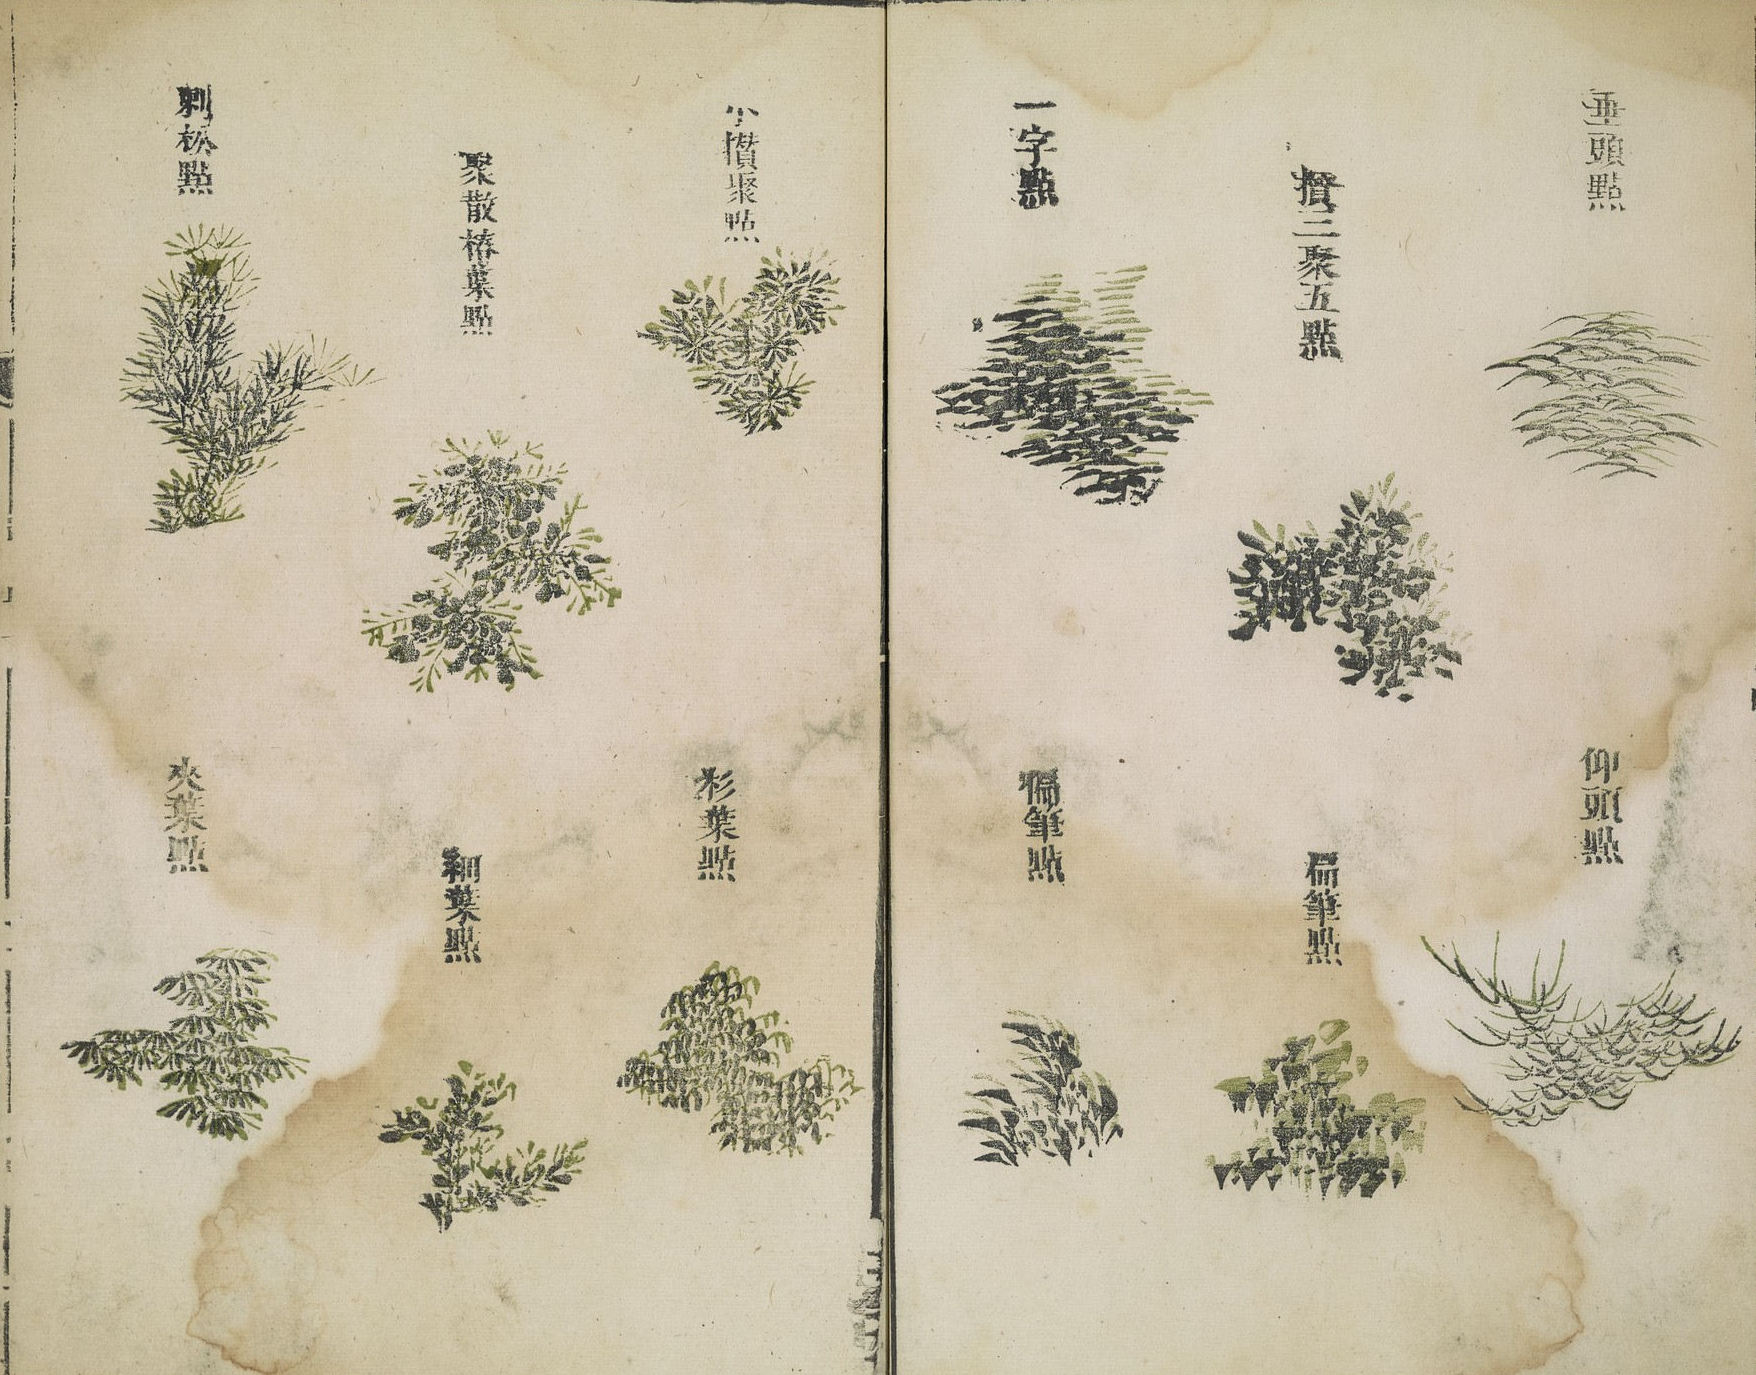 垂頭點
仰頭點
攢三聚五點
扁筆點
一字點
偏筆點
小攢聚點
杉葉點
聚散椿葉點
細葉點
刺松點
夾葉點